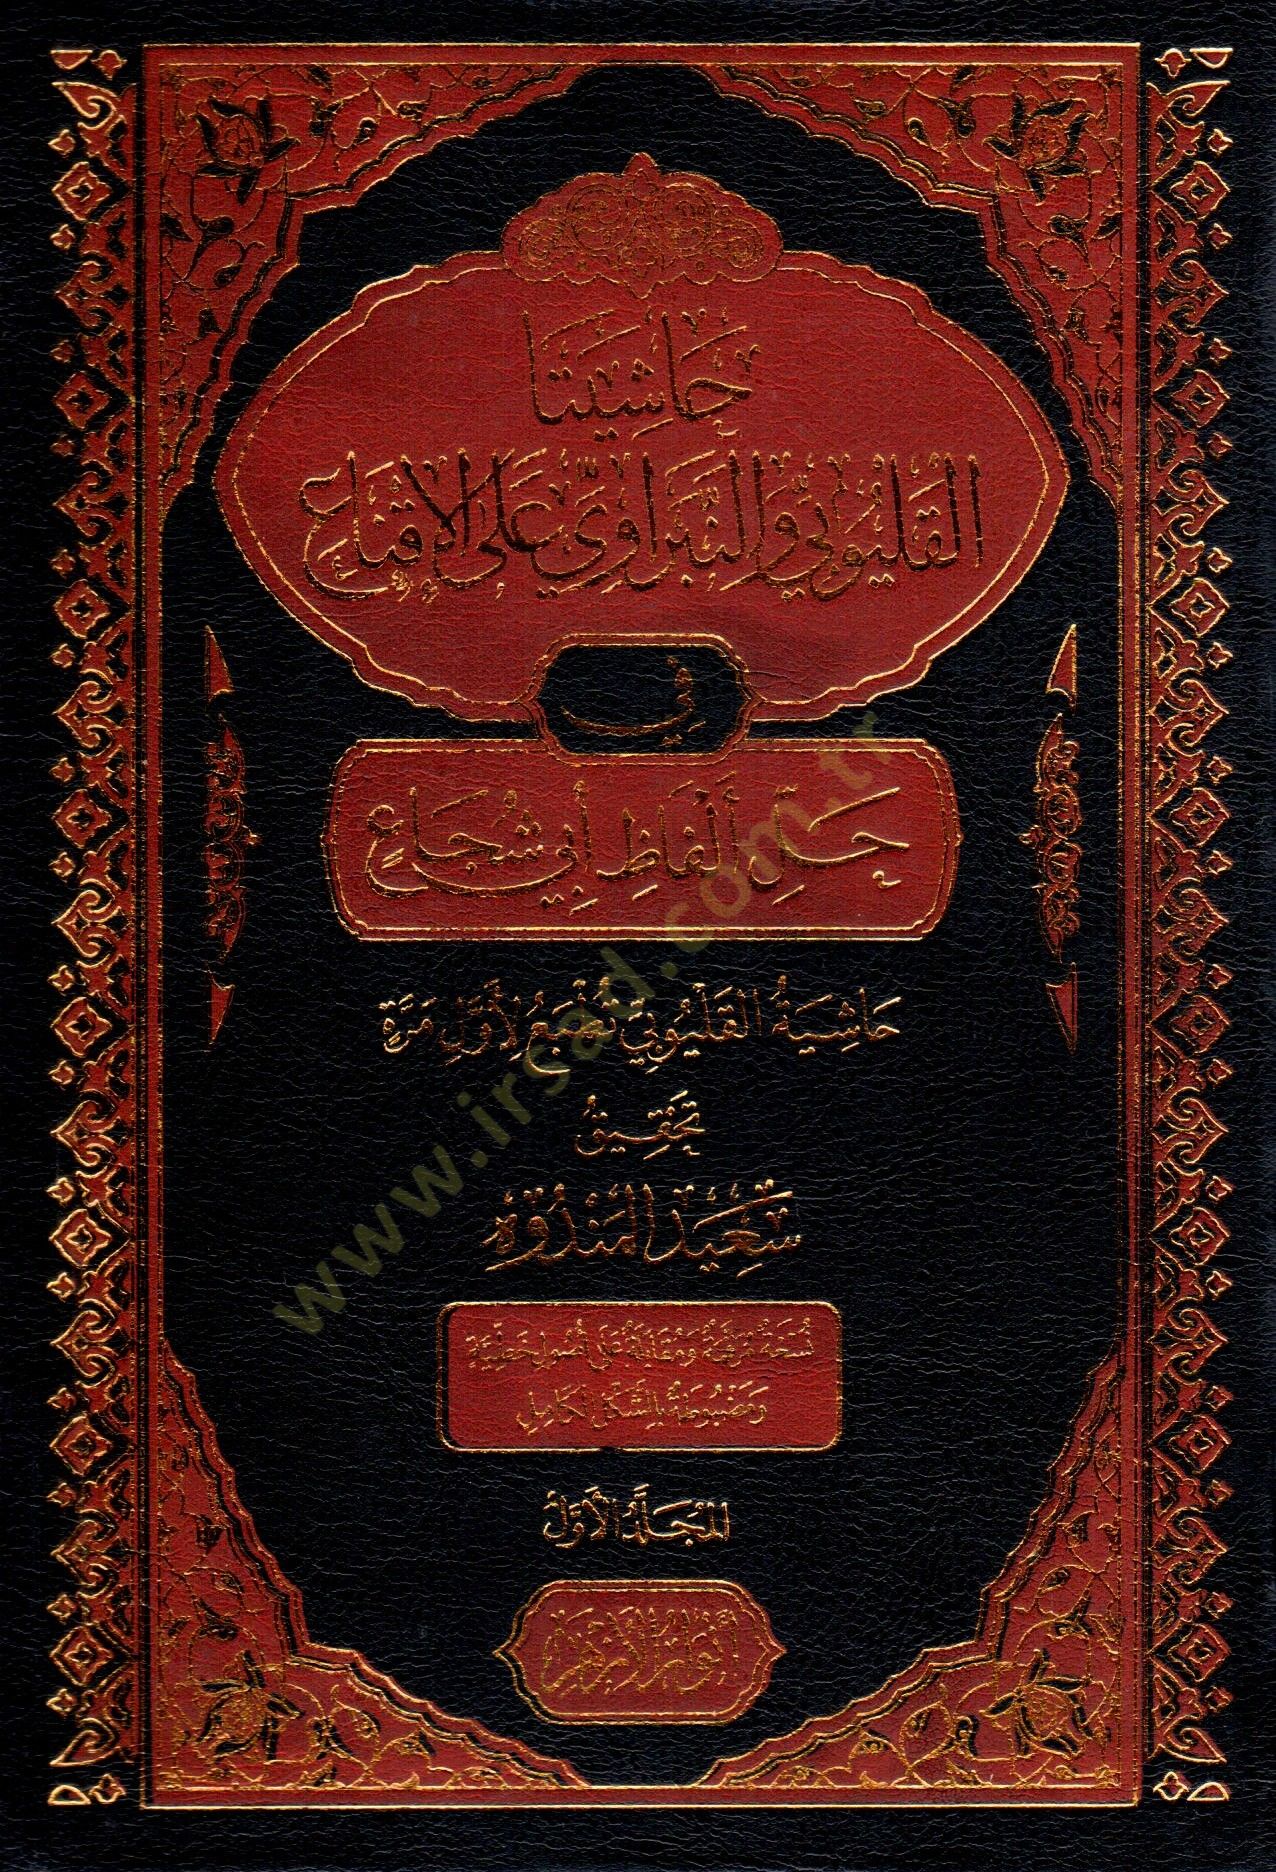 حَاشِيَتَا
القَلْيُوبِيِّ وَالنَّبَرَاوِيِّ عَلَى الإِقْنَاعِ
فِي
حَلِّ أَلْفَاظِ أَبِي شُجَاعٍ
حَاشِيَةُ القَلْيُوبِيِّ تُطْبَعُ لِأَوَّلِ مَرَّةٍ
تَحْقِيقُ
سَعِيد المَنْدُوَه
نُسْخَةٌ مُرَقَّمَةٌ وَمُقَابَلَةٌ عَلَى أُصُولٍ خَطِّيَّةٍ
وَمَضْبُوطَةٌ بِالشَّكْلِ الكَامِلِ
المُجَلَّدُ الأَوَّلُ
أنوار الأزهر
www.irsad.com.tr